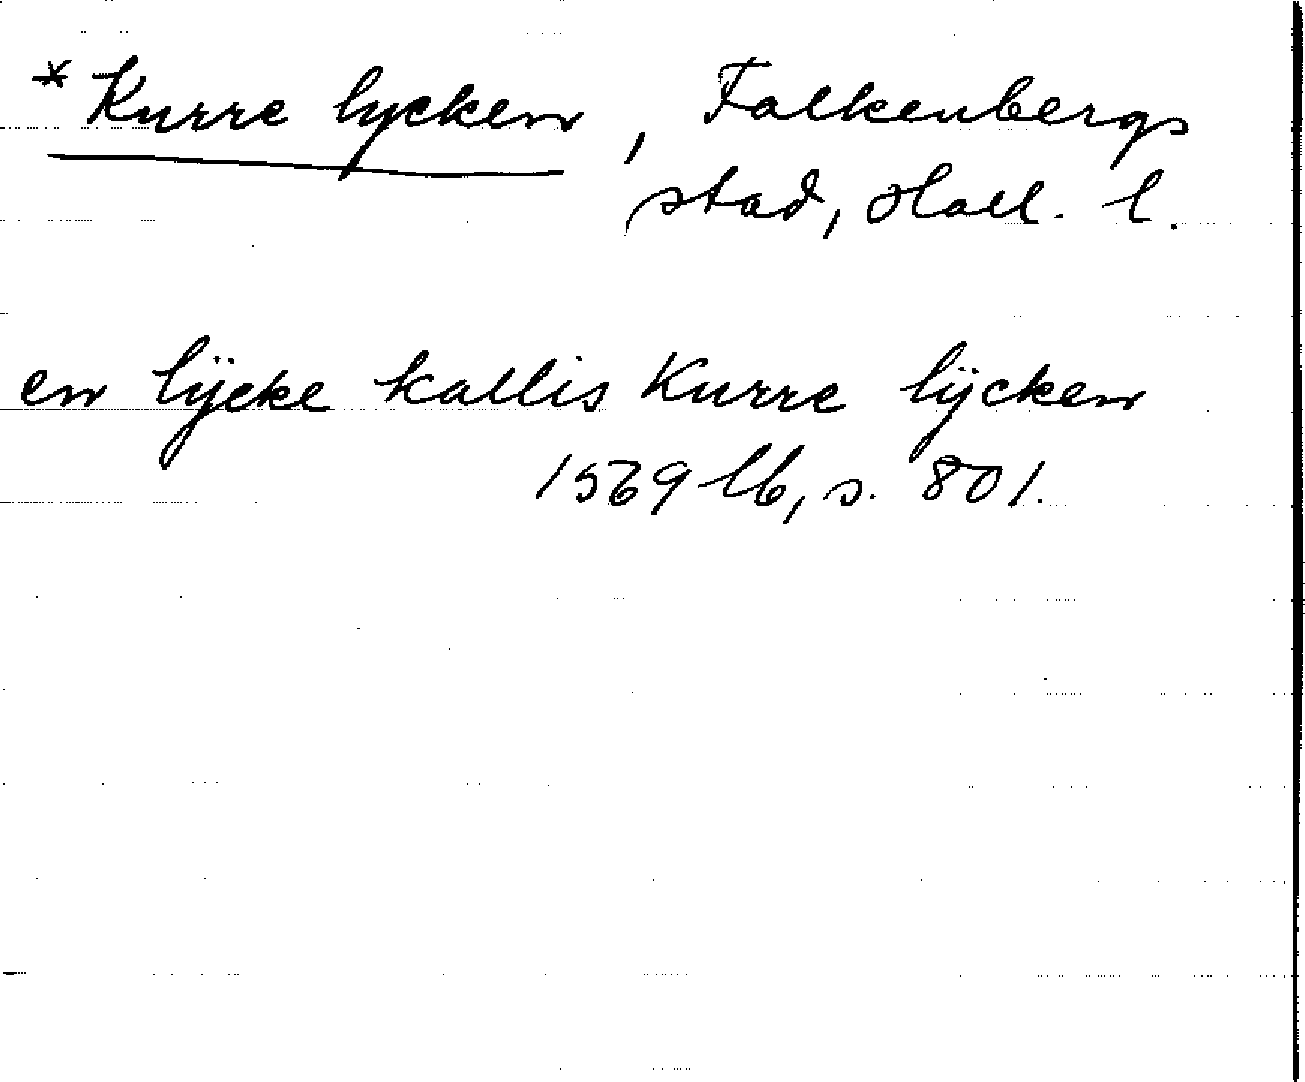 * Kurre lycken, Falkenbergs
stad, Hall. l.
en lÿcke kallis Kurre lÿcken
1569 lb, s. 801.